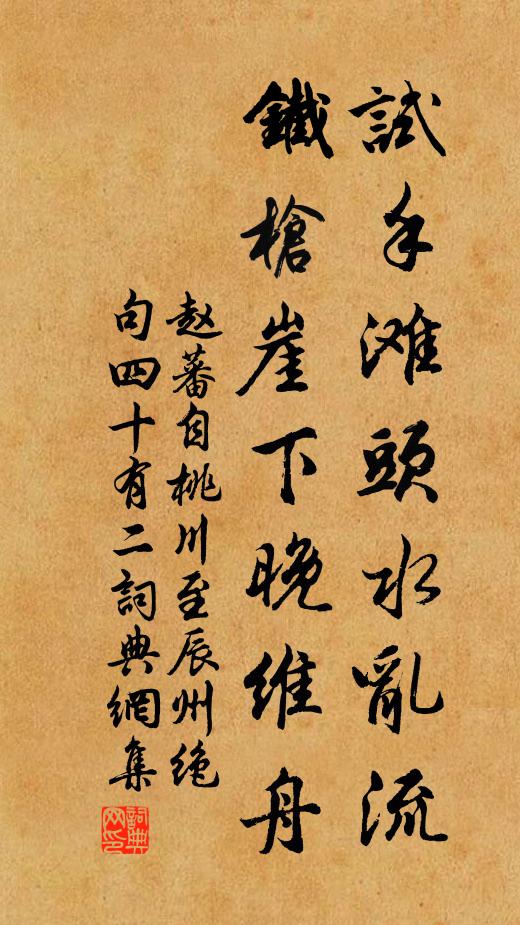 試手滩頭水亂流
鐵槍崖下晚維舟
赵蕃自桃川至辰州绝
句四十有二詞典網集
詞典网印